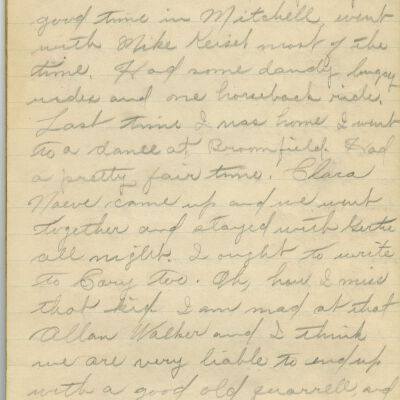 good time in Mitchell, went
with Mike Keisel most of the
time. Had some dandy buggy
rides and one horseback ride.
Last time I was home I went
to a dance at Broomfield. Had
a pretty fair time. Clara
Naeve came up and we went
together and stayed with Gertie
all night. I ought to write
to Cary too. Oh, how I miss
that kid. I am mad at that
Allan Walker and I think
we are very liable to end up
with a good old quarrell, and